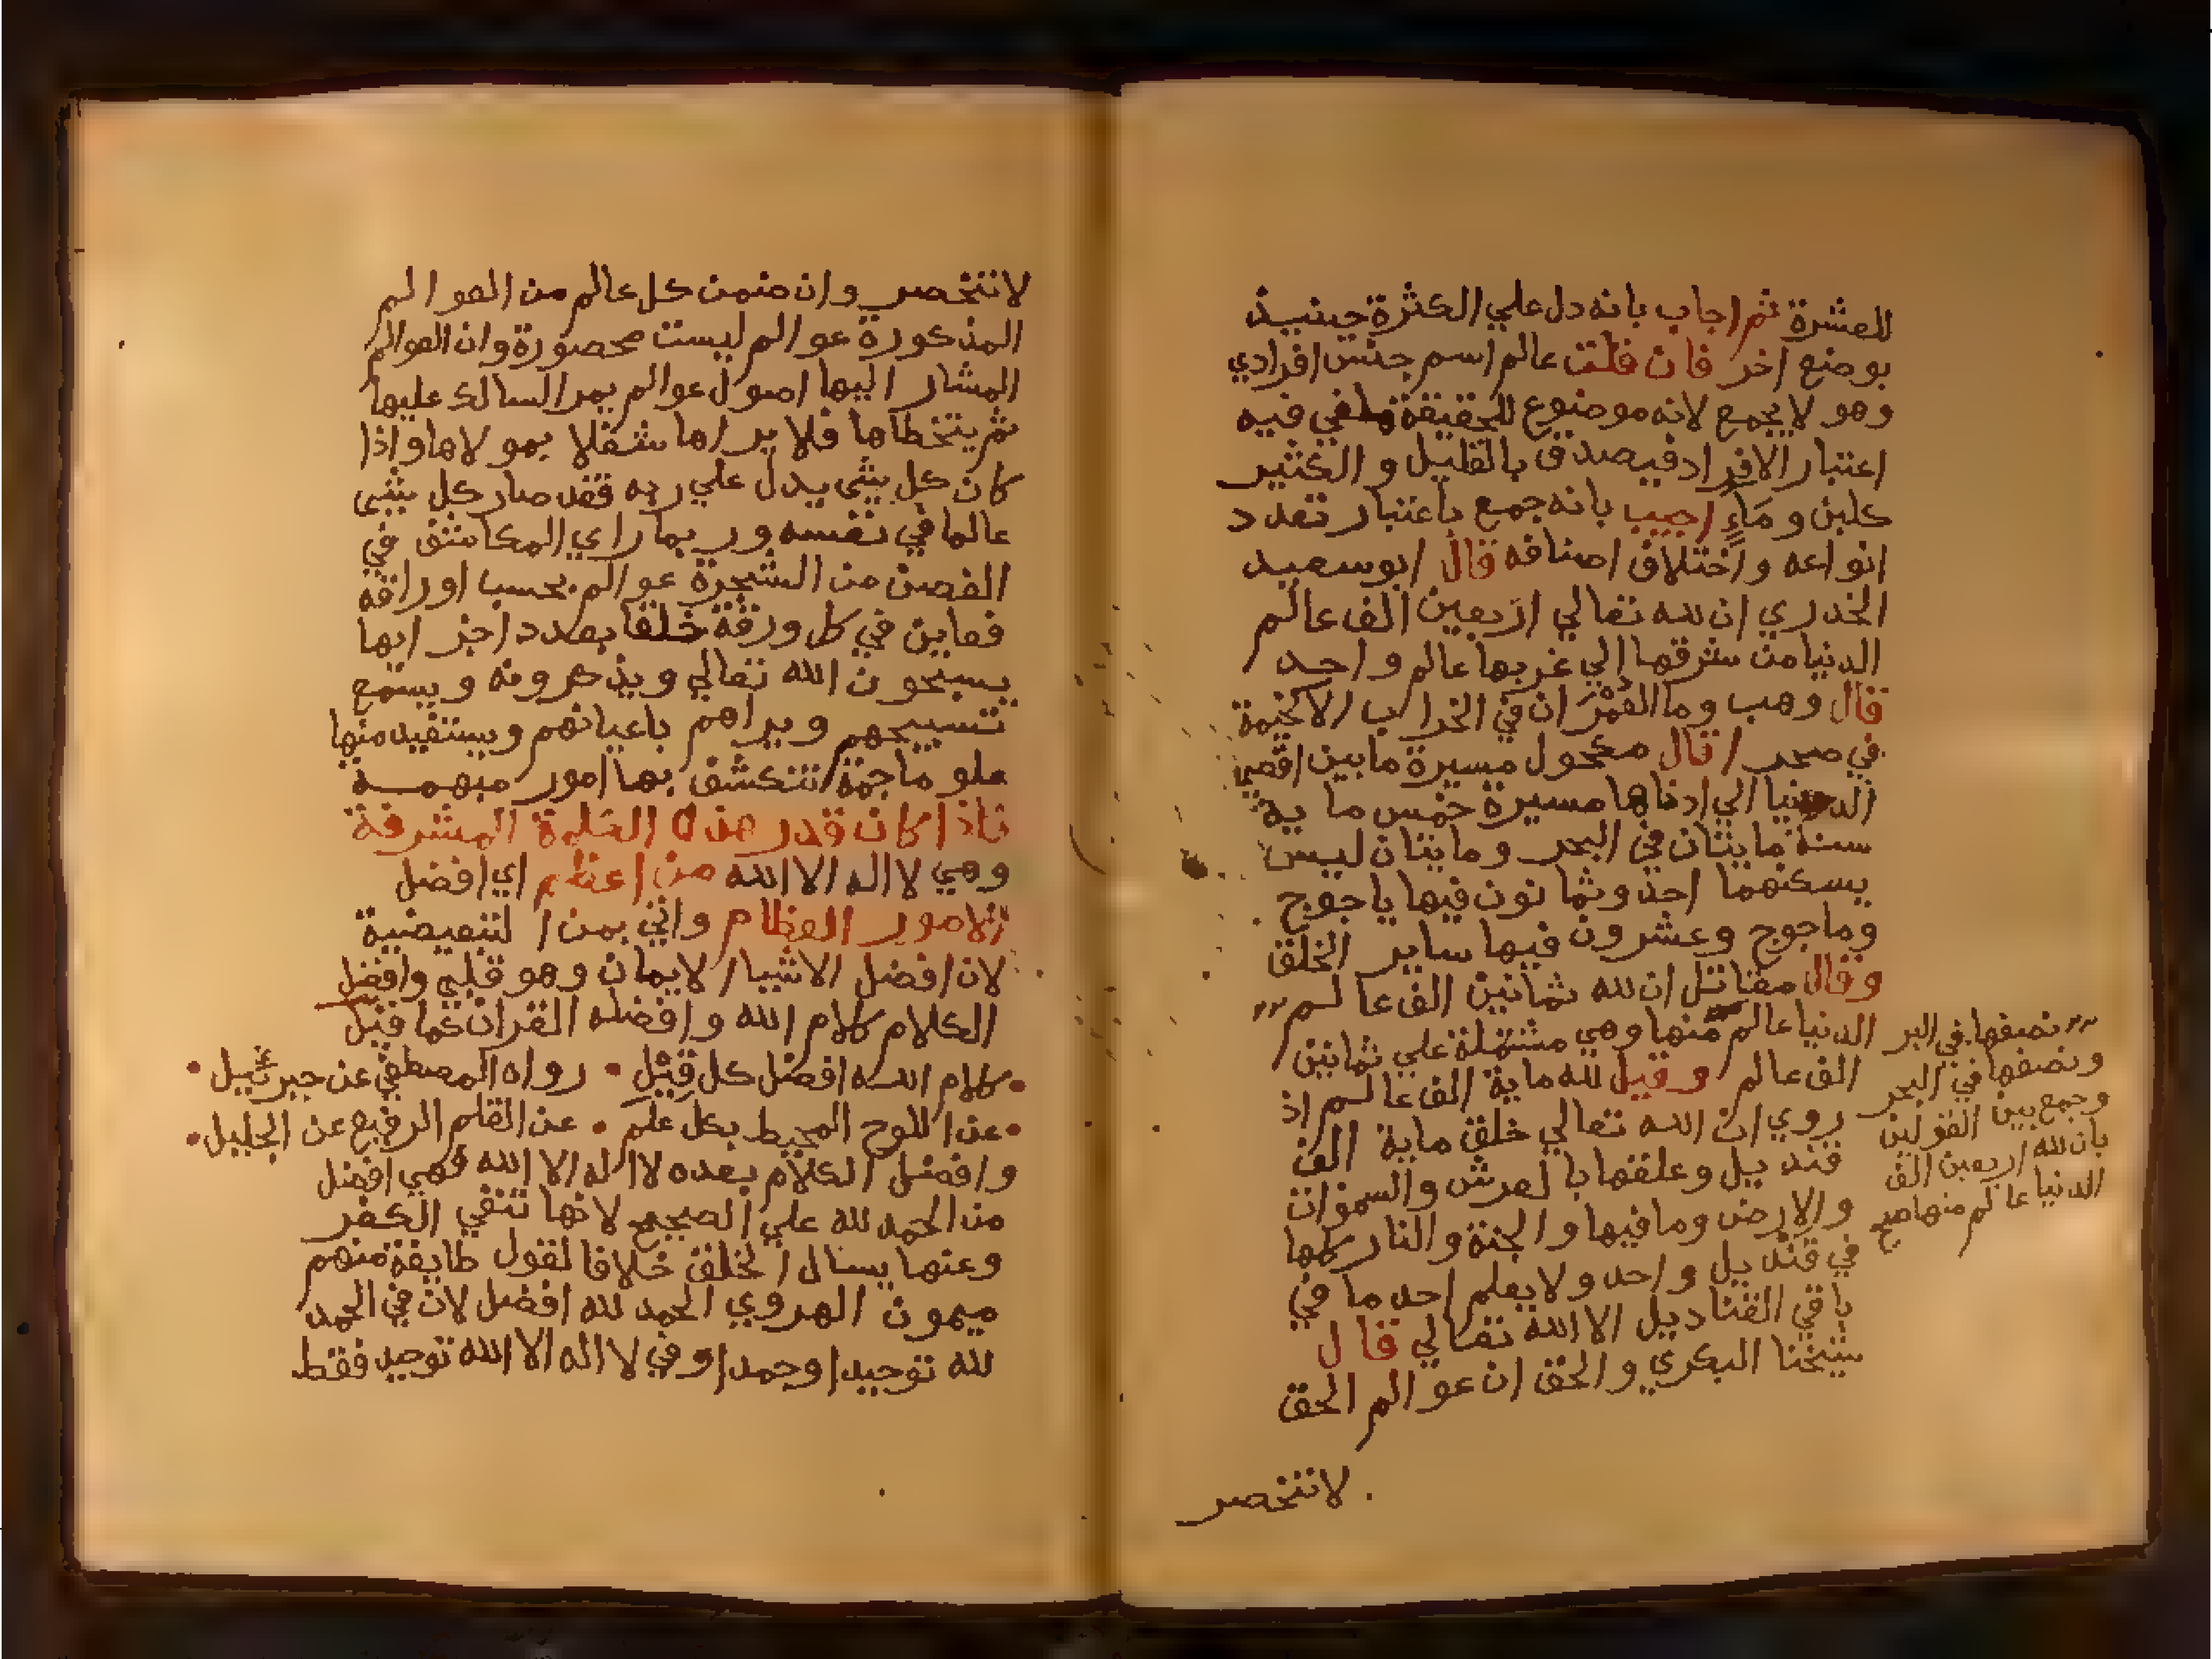 للعشرة ثم اجاب بانه دل علي الكثرة حينيذ
بوضع اخر فان قلت عالم اسم جنس افرادي
وهو لا يجمع لانه موضوع للحقيقة ملغي فيه
اعتبار الافراد فيصدق بالقليل و الكثير
كلبن و مَاءٍ اجيب بانه جمع باعتبار تعدد
انواعه واختلاف اصنافه قال ابوسعيد
الخدري ان لله تعالي اربعين الف عالم
الدنيا من شرقها الي غربها عالم واحد
قال وهب وما العُمْرَان في الخراب الا كخيمة
في صحرا قال مكحول مسيرة ما بين اقصي
الدنيا الي ادناها مسيرة خمس ماية
سنة مايتان في البحر ومايتان ليس
يسكنهما احد وثمانون فيها ياجوج
وماجوج وعشرون فيها ساير الخلق
وقال مقاتل ان لله ثمانين الف عالم
الدنيا عالم منها وهي مشتملة علي ثمانين
الف عالم وقيل لله ماية الف عالم اذ
روي ان الله تعالي خلق ماية الف
قنديل وعلقها بالعرش والسموات
والارض وما فيها والجنة والنار كلها
في قنديل واحد ولا يعلم احد ما في
باقي القناديل الا الله تعالي قال
شيخنا البكري والحق ان عوالم الحق
لا تنحصر
نصفها في البر
ونصفها في البحر
وجمع بين القولين
بان لله اربعين الف
الدنيا عالم منها صح
لا تنحصر وان ضمن كل عالم من العوالم
المذكورة عوالم ليست محصورة وان العوالم
المشار اليها اصول عوالم يمر السالك عليها
ثم يتخطاها فلا يراها شغلا بمولاها واذا
كان كل شي يدل علي ربه فقد صار كل شي
عالما في نفسه وربما راي المكاشف في
الغصن من الشجرة عوالم بحسب اوراقه
فعاين في كل ورقة خلقا بعدد اجزايها
يسبحون الله تعالي ويذكرونه ويسمع
تسبيحهم ويراهم باعيانهم ويستفيد منها
علوما جمة تنكشف بها امور مبهمة
فاذا كان قدر هذه الكلمة المشرفة
وهي لا اله الا الله من اعظم اي افضل
الامور العظام واتي بمن التبعيضية
لان افضل الاشيا الايمان وهو قلبي وافضل
الكلام كلام الله وافضله القران كما قيل
كلام الله افضل كل قيل • رواه المصطفي عن جبرئيل •
عن اللوح المحيط بكل علم • عن القلم الرفيع عن الجليل •
وافضل الكلام بعده لا اله الا الله فهي افضل
من الحمد لله علي الصحيح لانها تنفي الكفر
وعنها يسال الخلق خلافا لقول طايفة منهم
ميمون الهروي الحمد لله افضل لان في الحمد
لله توحيدا وحمدا وفي لا اله الا الله توحيد فقط